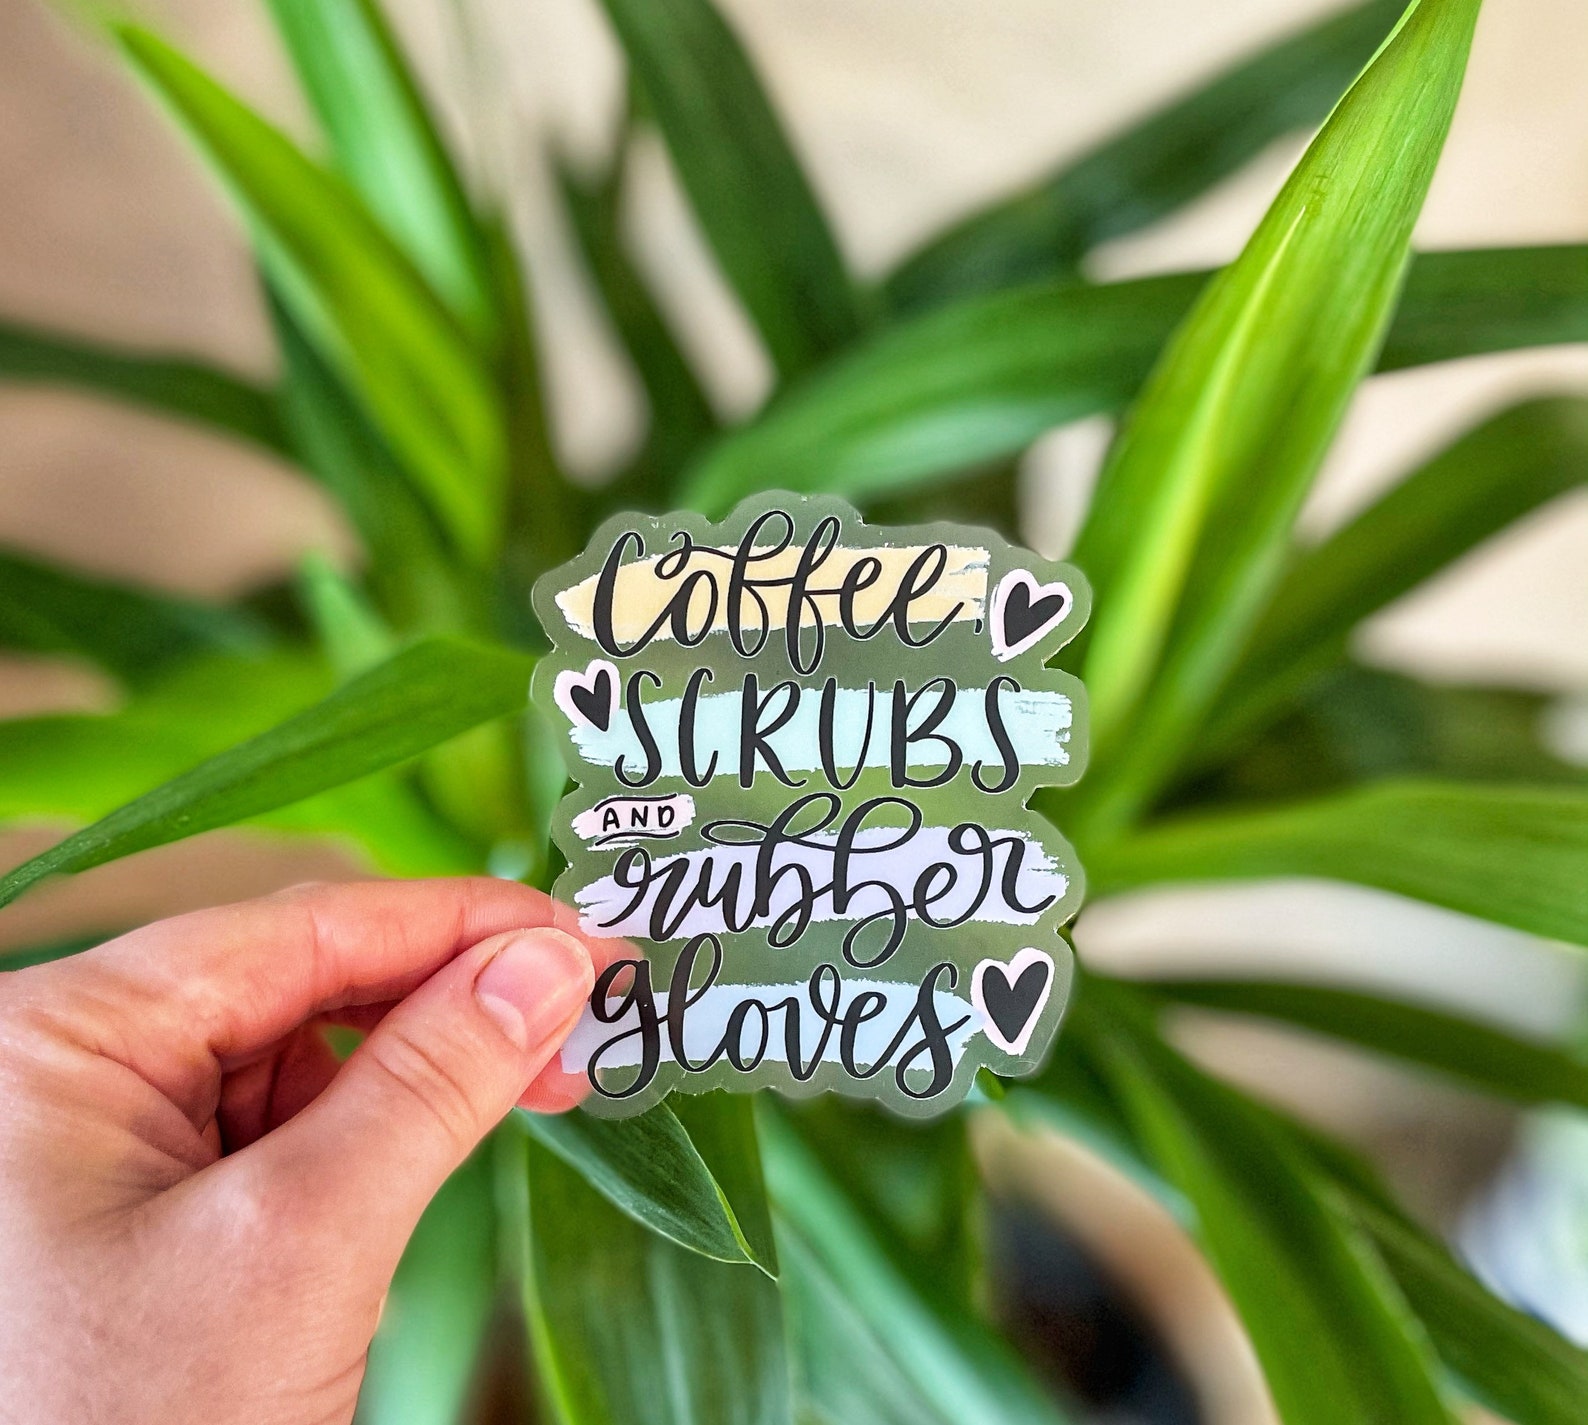 Coffee,
SCRUBS
AND
rubber
gloves